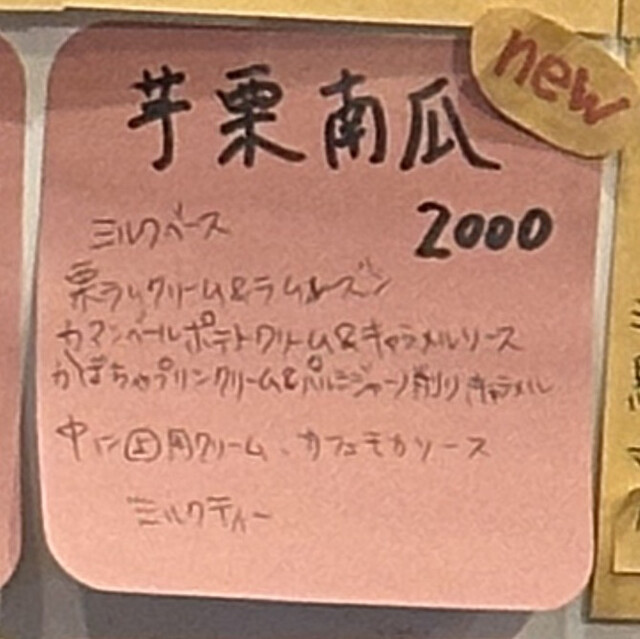 new
芋栗南瓜
2000
ミルクベース
栗ラムクリーム&ラムレーズン
カマンベールポテトクリーム&キャラメルソース
かぼちゃプリンクリーム&パルミジャーノ削りキャラメル
中に クリーム、カフェモカソース
ミルクティー